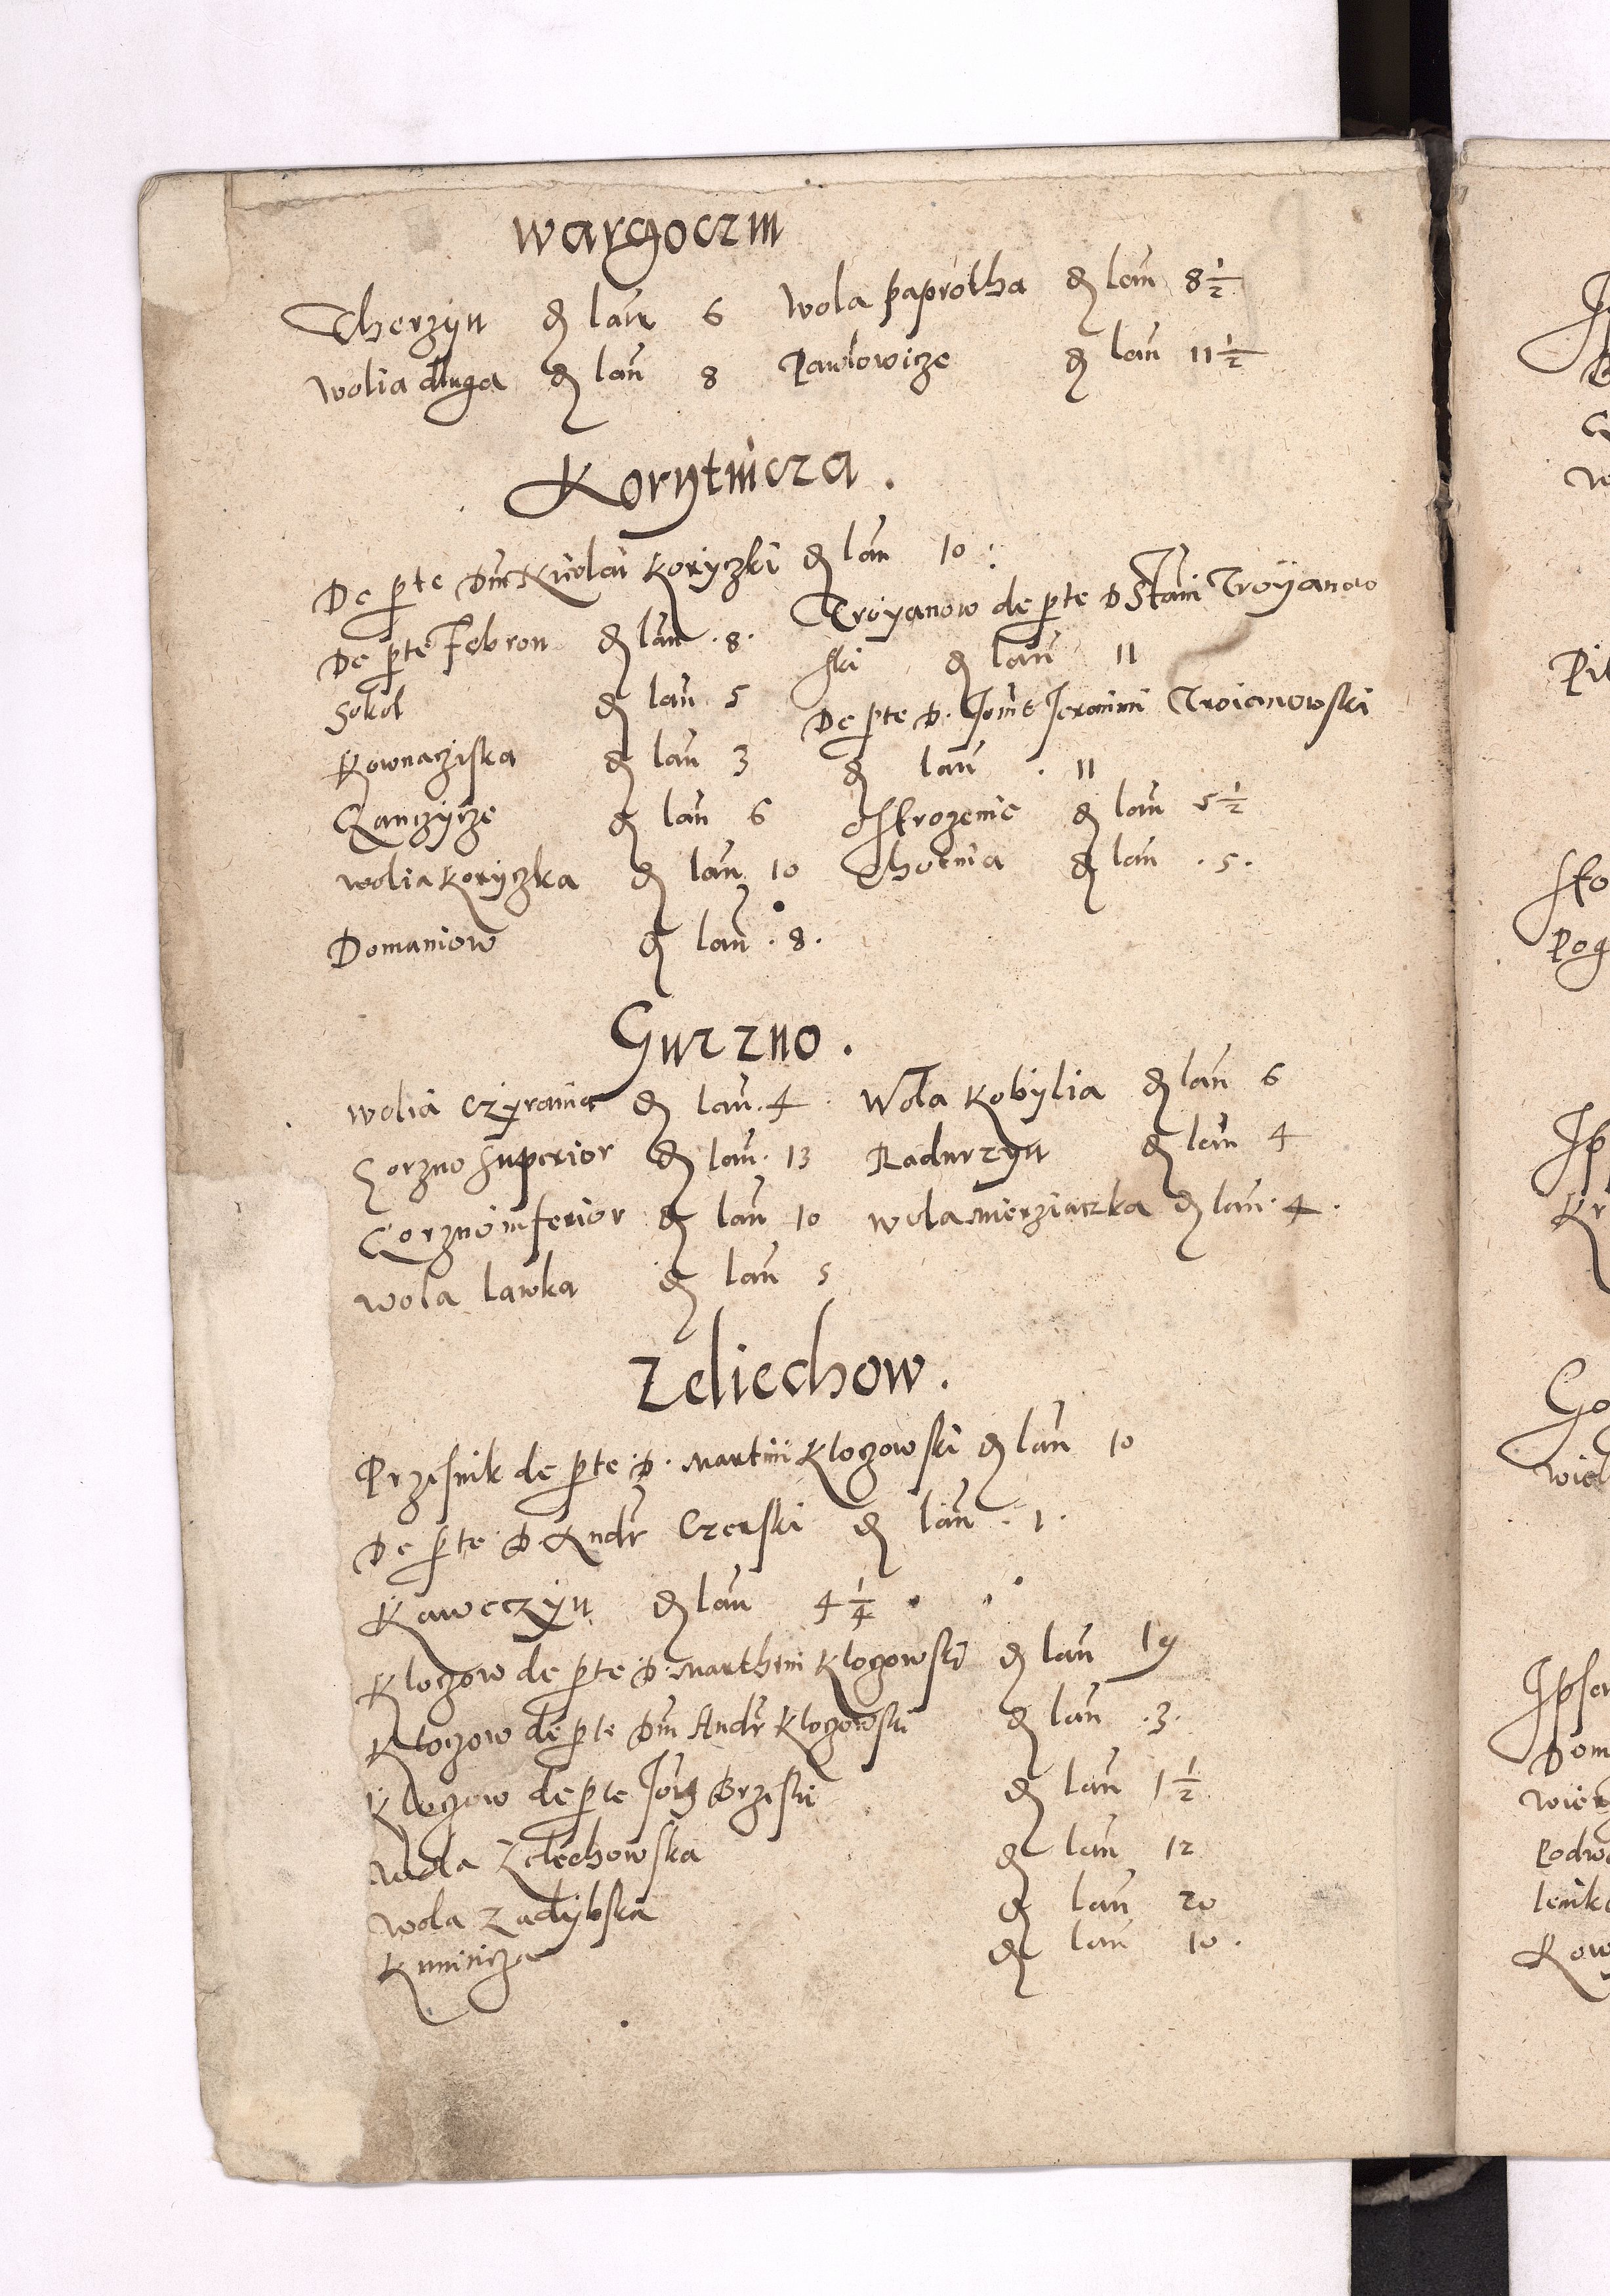 Wargoczin
Therzyn de lan 6 Wola paprotha de lan 8 1/2
Wolia dluga de lan 8 Pawlowicze de lan 11 1/2
Korytnicza.
De pte Dni Nicolai Koryczki de lan 10
De pte Febron de lan .8. Troyanow de pte D Stani Troÿanow
ski de lan 11
Sokol de lan 5 De pte D. Joīs Jeronimi Troianowski
Kownacziska de lan 3 de lan . 11
Ranczycze de lan 6 Ostrozenie de lan 5 1/2
Wolia Koryczka de lan 10 Chotinia de lan .5.
Domaniow de lan .8.
Gurzno.
Wolia Czyrania de lan. 4 . Wola Kobylia de lan 6
Gorzno Superior de lan. 13 Radurzyn de lan 4
Gorzno inferior de lan 10 Wola mierziaczka de lan. 4.
Wola lawka de lan 5
Zeliechow.
Przesnik de pte D. Martini Klogowski de lan 10
De pte D. Andr Czerski de lan .1.
Kaweczyn de lan 4 1/4
Kloczow de pte D. Marthini Klogowski de lan 19
Kloczow de pte Dni Andr Klogowski de lan .3.
Kloczow de pte Brzeski de lan 1 1/2
Wola Zelechowska de lan 12
Wola Zadybska de lan 20
Kunicza de lan 10.